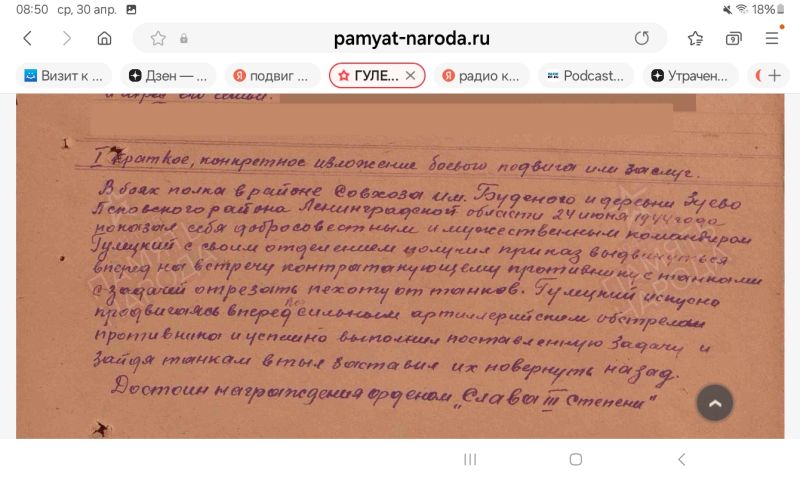 08:50 ср, 30 апр. 18%
pamyat-naroda.ru
Визит к ... Дзен — ... подвиг ... ГУЛЕ... радио к... Podcast... Утрачен...
1
I Краткое, конкретное изложение боевого подвига или заслуг.
В боях полка в районе Совхоза им. Буденого и деревни Зуево
Псковского района Ленинградской области 24 июня 1944 года
показал себя добросовестным и мужественным командиром
Гулецкий с своим отделением получил приказ выдвинуться
вперед на встречу контратакующему противнику с танками
с задачей отрезать пехоту от танков. Гулецкий искусно
продвигаясь вперед под сильным артиллерийским обстрелом
противника и успешно выполнил поставленную задачу и
зайдя танкам в тыл заставил их повернуть назад.
Достоин награждения орденом „Слава III степени"